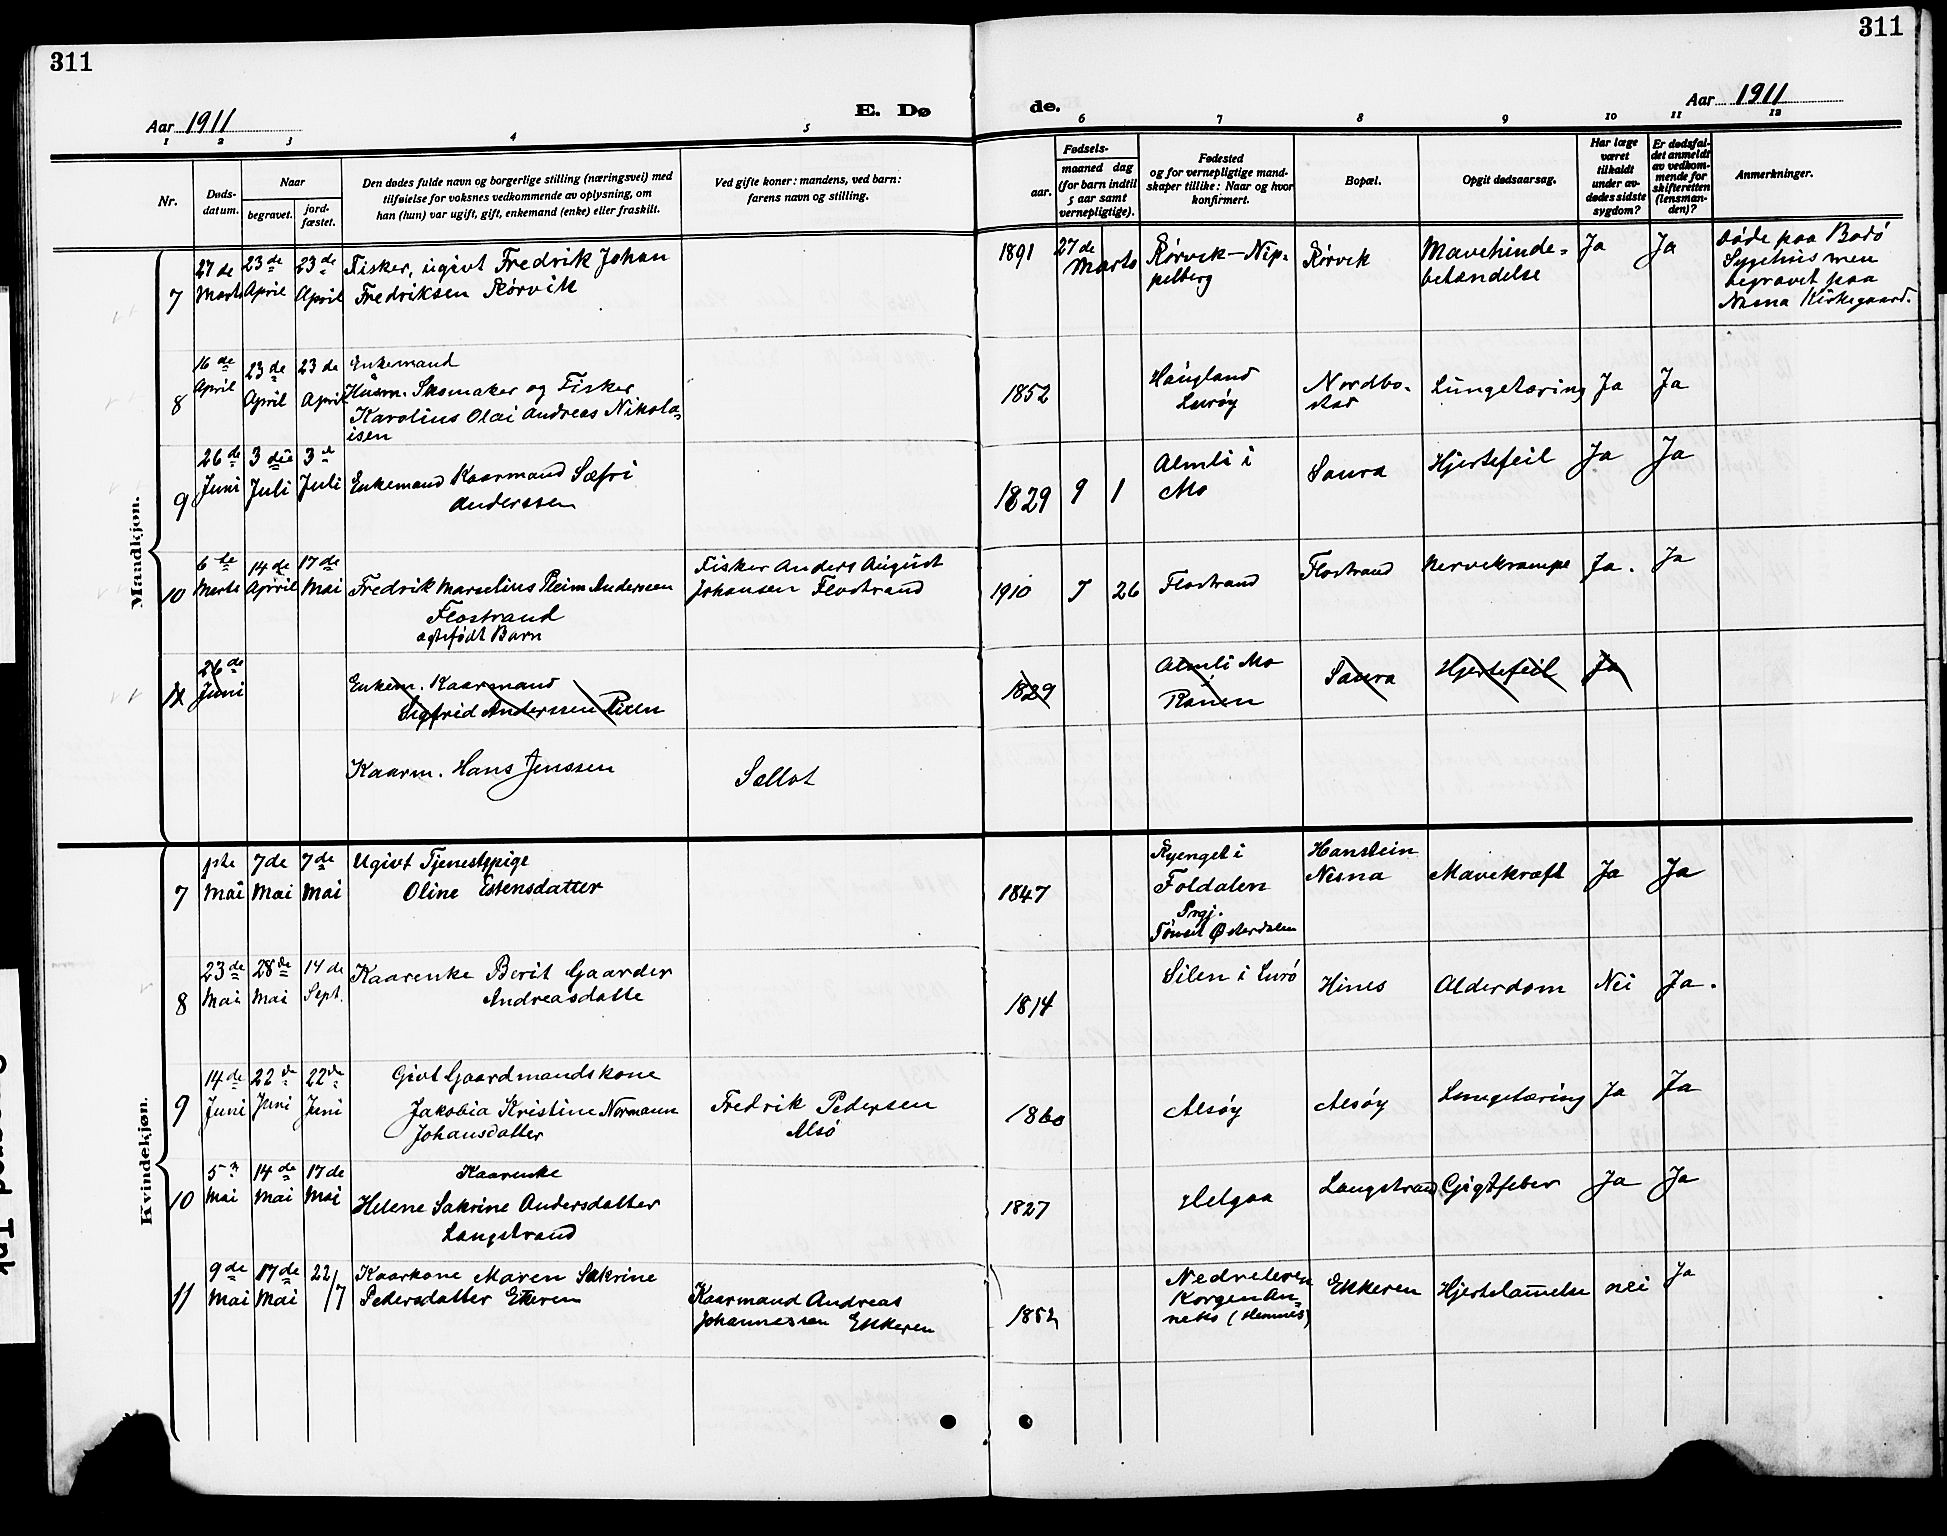 311
311
Aar 1911
E. Dø
de.
Aar 1911
1 2 3 4 5 6 7 8 9 10 11 12
Nr.
Døds-
datum.
Naar
begravet.
jord-
fæstet.
Den dødes fulde navn og borgerlige stilling (næringsvei) med
tilføielse for voksnes vedkommende av oplysning, om
han (hun) var ugift, gift, enkemand (enke) eller fraskilt.
Ved gifte koner: mandens, ved barn:
farens navn og stilling.
Fødsels-
aar.
maaned dag
(for barn indtil
5 aar samt
vernepligtige).
Fødested
og for vernepligtige mand-
skaper tillike: Naar og hvor
konfirmert.
Bopæl.
Opgit dødsaarsag.
Har læge
været
tilkaldt
under av-
dødes sidste
sygdom?
Er dødsfal-
det anmeldt
av vedkom-
mende for
skifteretten
(lensman-
den)?
Anmerkninger.
Mandkjøn.
7
27 de
Marts
23 de
April
23 de
April
Fisker, ugivt Fredrik Johan
Fredriksen Rørvik
1891
27 de
Marts
Rørvik-Nip-
pelberg
Rørvik
Mavehinde-
betændelse
Ja
Ja
døde paa Bodö
Sygehus men
begravet paa
Nesna Kirkegaard.
8
16 de
April
23 de
April
23 de
April
Enkemand
Husm. Skomaker og Fisker
Karolius Olai Andreas Nikola-
isen
1852
Haugland
Lurøy
Nordbo-
stad
Lungetæring
Ja
Ja
9
26 de
Juni
3 die
Juli
3 d
Juli
Enkemand Kaarmand Sæfri
Anderssen
1829
9
1
Almli i
Mo
Saura
Hjertefeil
Ja
Ja
10
6 te
Marts
14 de
April
17 de
Mai
Fredrik Marselius Anderssen
Flostrand
ægtefödt Barn
Fisker Anders August
Johansen Flostrand
1910
5
26
Flostrand
Flostrand
Nervekrampe
Ja.
Ja
11
26 de
Juni
Enkem. Kaarmand
Sigfrid Anderssen
1829
Almli Mo
i
Ranen
Saura
Hjertefeil
Ja
Kaarm. Hans Jenssen
Sellot
Kvindekjøn.
7
1ste
Mai
7 de
Mai
7 de
Mai
Ugivt Tjenestepige
Oline Estensdatter
1847
Ryenget i
Foldalen
Prgj.
Tönset Østerdalen
Hanstein
Nesna
Mavekræft
Ja
Ja
8
23 de
Mai
28 de
Mai
14 de
Sept.
Kaarenke Berit Gaarder
Andreasdatte
1814
Silen i Lurö
Hines
Alderdom
Nei
Ja.
9
14 de
Juni
22 de
Juni
22 de
Juni
Givt Gaardmandskone
Jakobia Kristine Normann
Johansdatter
Fredrik Pedersen
Alsö
1860
Alsöy
Alsöy
Lungetæring
Ja
Ja
10
5 n
Mai
14 de
Mai
17 de
Mai
Kaarenke
Helene Sakrine Andersdatter
Langstrand
1827
Helgaa
Langstrand
Gigtfeber
Ja
Ja
11
9 de
Mai
17 de
Mai
22/7
Kaarkone Maren Sakrine
Pedersdatter Ekkeren
Kaarmand Andreas
Johannessen Ekkeren
1852
Nedreleren
Korgen An-
neks (Hemnes)
Ekkeren
Hjertelammelse
nei
Ja